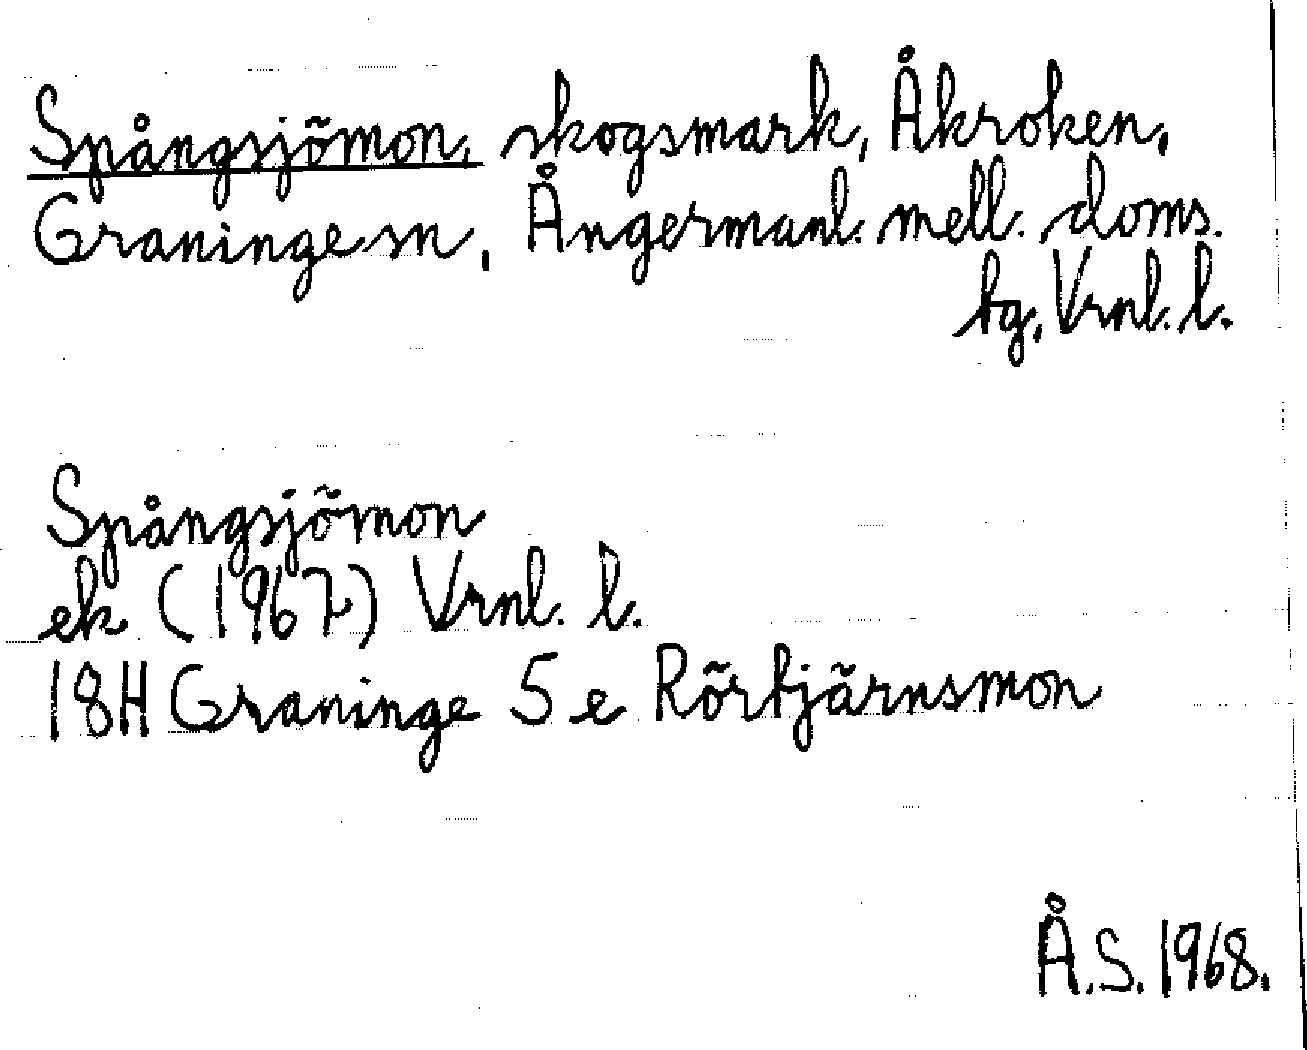 Spångsjömon, skogsmark, Åkroken,
Graninge sn, Ångermanl. mell. doms.
tg, Vrnl. l.
Spångsjömon
ek (1967) Vrnl. l.
18H Graninge 5 e Rörtjärnsmon
Å.S. 1968.